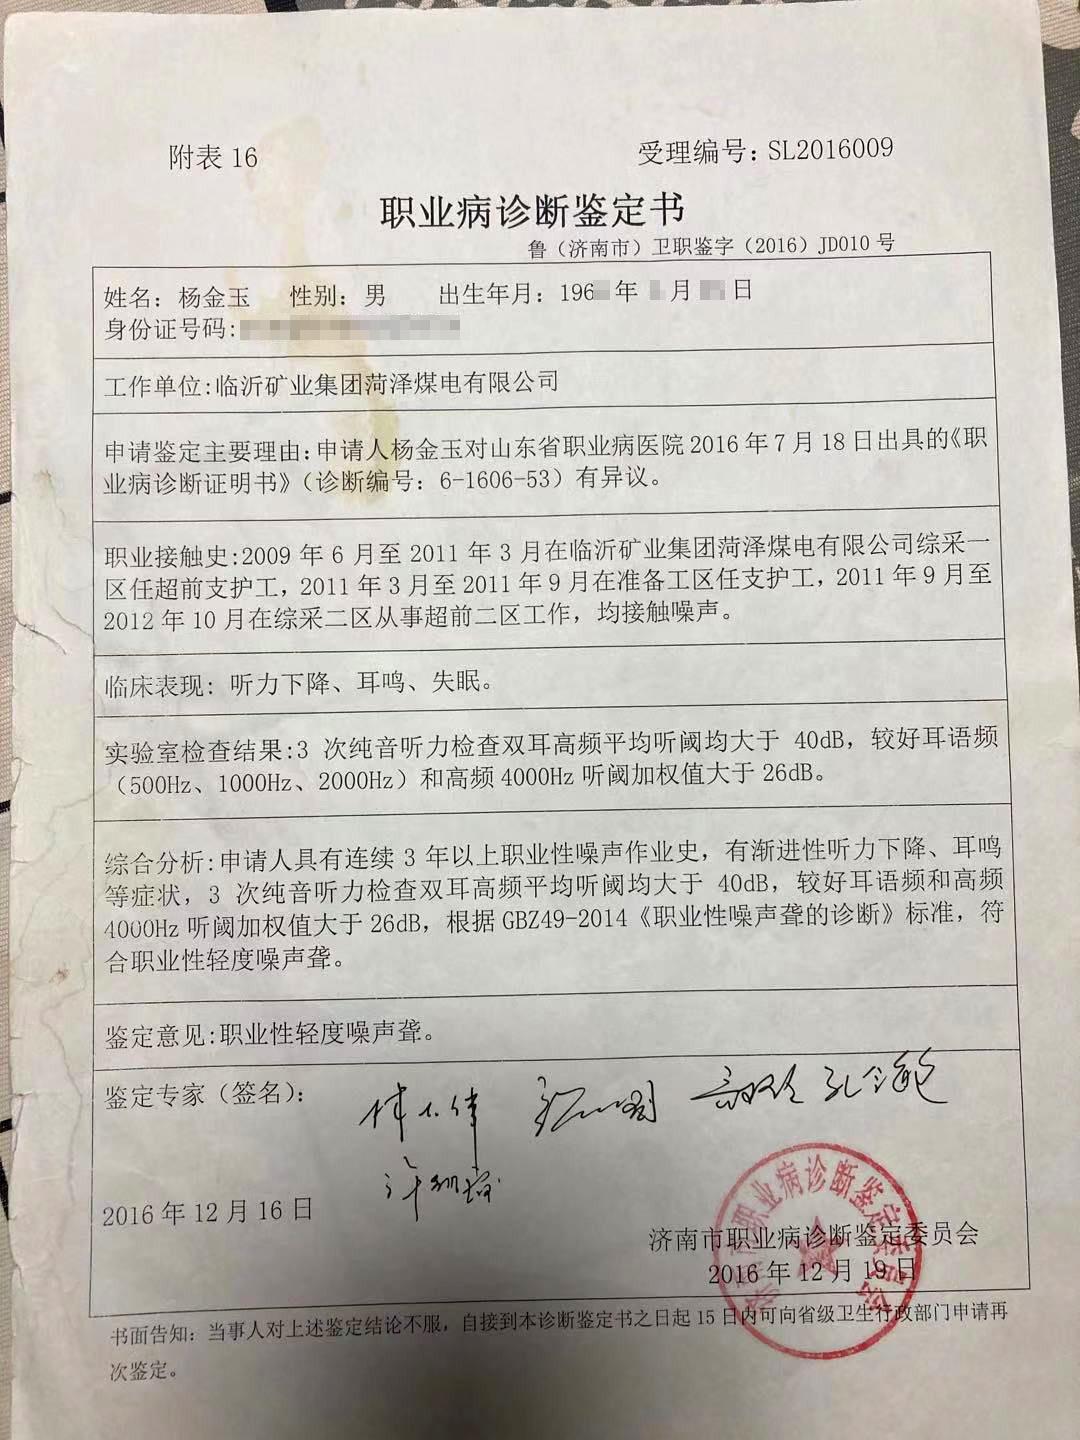 附表 16
受理编号：SL2016009
职业病诊断鉴定书
鲁（济南市）卫职鉴字（2016）JD010 号
姓名：杨金玉 性别：男 出生年月：196 年 月 日
身份证号码：
工作单位:临沂矿业集团菏泽煤电有限公司
申请鉴定主要理由:申请人杨金玉对山东省职业病医院 2016 年 7 月 18 日出具的《职
业病诊断证明书》（诊断编号：6-1606-53）有异议。
职业接触史:2009 年 6 月至 2011 年 3 月在临沂矿业集团菏泽煤电有限公司综采一
区任超前支护工，2011 年 3 月至 2011 年 9 月在准备工区任支护工，2011 年 9 月至
2012 年 10 月在综采二区从事超前二区工作，均接触噪声。
临床表现：听力下降、耳鸣、失眠。
实验室检查结果:3 次纯音听力检查双耳高频平均听阈均大于 40dB，较好耳语频
（500Hz、1000Hz、2000Hz）和高频 4000Hz 听阈加权值大于 26dB。
综合分析:申请人具有连续 3 年以上职业性噪声作业史，有渐进性听力下降、耳鸣
等症状，3 次纯音听力检查双耳高频平均听阈均大于 40dB，较好耳语频和高频
4000Hz 听阈加权值大于 26dB，根据 GBZ49-2014《职业性噪声聋的诊断》标准，符
合职业性轻度噪声聋。
鉴定意见:职业性轻度噪声聋。
鉴定专家（签名）：
2016 年 12 月 16 日
职业病诊断鉴定委员会
济南市职业病诊断鉴定委员会
2016 年 12 月 19 日
书面告知：当事人对上述鉴定结论不服，自接到本诊断鉴定书之日起 15 日内可向省级卫生行政部门申请再
次鉴定。